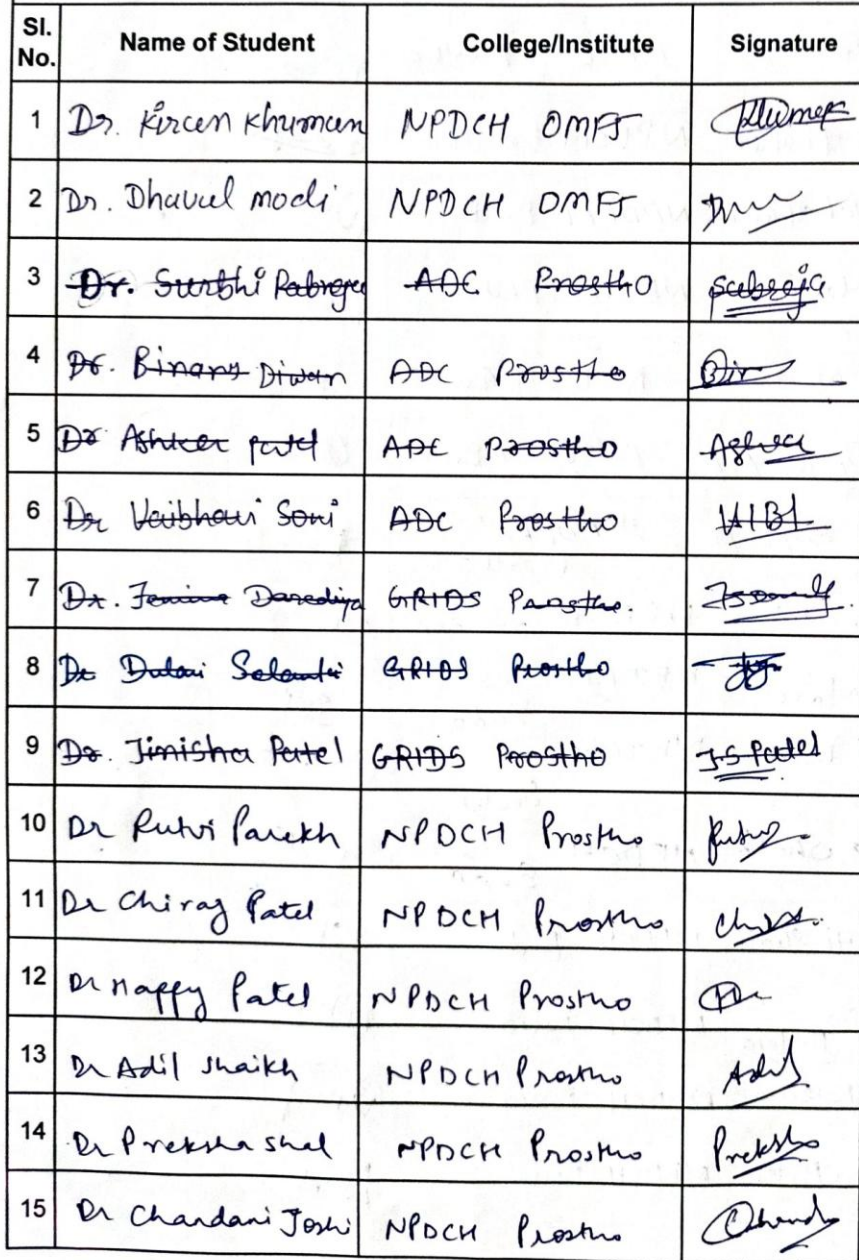 Sl. No. Name of Student College/Institute Signature
1 Dr. Kiran Khuman NPDCH OMFS
2 Dr. Dhaval modi NPDCH OMFS
3 Dr. Surbhi Pabreja ADC Prostho Pabreja
4 Dr. Binany Diwan ADC Prostho
5 Dr Ashka patel ADC Prostho Ashka
6 Dr Vaibhavi Soni ADC Prostho
7 Dr. Darediya GRIDS Prostho.
8 Dr GRIDS Prostho
9 Dr. Jimisha Patel GRIDS Prostho J.S Patel
10 Dr Rutvi Parekh NPDCH Prostho
11 Dr Chirag Patel NPDCH Prostho
12 Dr Happy Patel NPDCH Prostho
13 Dr Adil Shaikh NPDCH Prostho Adil
14 Dr Preksha shah NPDCH Prostho Preksha
15 Dr Chandani Joshi NPDCH Prostho